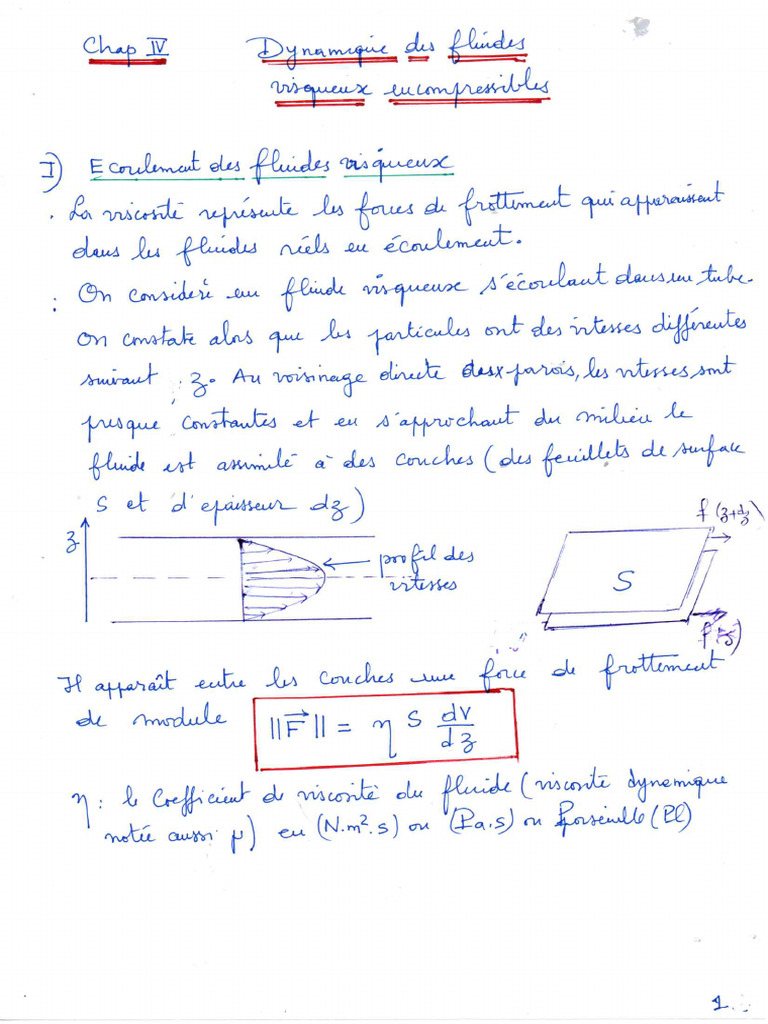 Chap IV Dynamique des fluides
visqueux incompressibles
I) Ecoulement des fluides visqueux
. La viscosité représente les forces de frottement qui apparaissent
dans les fluides réels en écoulement.
: On considère un fluide visqueux s'écoulant dans un tube.
On constate alors que les particules ont des vitesses différentes
suivant z. Au voisinage directe des parois, les vitesses sont
presque constantes et en s'approchant du milieu le
fluide est assimilé à des couches (des feuillets de surface
S et d'epaisseur dz)
f(z+dz)
z
profil des
vitesses
S
f(z)
Il apparaît entre les couches une force de frottement
de module ||F⃗|| = η S dv/dz
η : le coefficient de viscosité du fluide (viscosité dynamique
notée aussi μ) en (N.m².s) ou (Pa.s) ou Poiseuille (Pl)
1